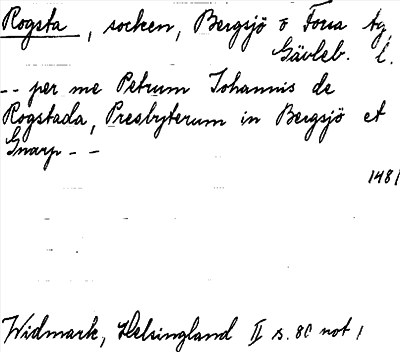 Rogsta, socken, Bergsjö & Forsa tg
Gävleb. l.
-- per me Petrum Johannis de
Rogstada, Presbyterum in Bergsjö et
Gnarp - -
1481
Widmark, Helsingland II s. 80 not 1